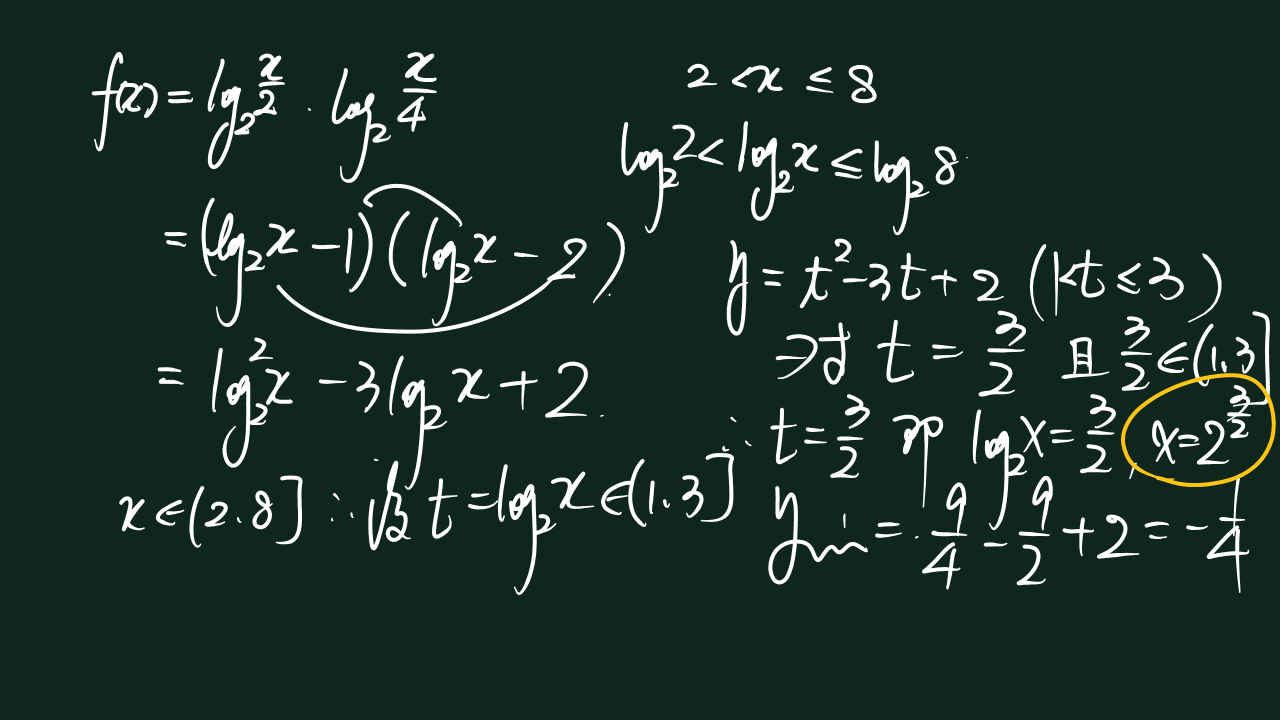 f(x) = log₂ x/2 · log₂ x/4
= (log₂x − 1)(log₂x − 2)
= log₂²x − 3log₂x + 2.
x∈(2.8] ∴设 t=log₂x∈(1.3]
2 < x ≤ 8
log₂2 < log₂x ≤ log₂8
y = t² − 3t + 2 (1<t≤3)
t = 3/2 且 3/2∈(1.3]
∴ t = 3/2 即 log₂x = 3/2, x=2^(3/2)
ymin = 9/4 − 9/2 + 2 = −1/4